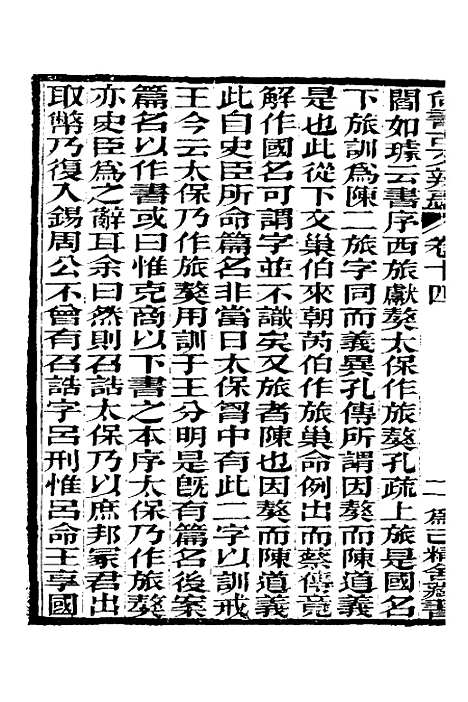 尚書古文辨惑 卷十四 一 為己精舍藏書
閻如璩云書序西旅獻獒太保作旅獒孔疏上旅是國名
下旅訓為陳二旅字同而義異孔傳所謂因獒而陳道義
是也此從下文巢伯來朝芮伯作旅巢命例出而蔡傳竟
解作國名可謂字並不識矣又旅者陳也因獒而陳道義
此自史臣所命篇名非當日太保胷中有此二字以訓戒
王今云太保乃作旅獒用訓于王分明是旣有篇名後案
篇名以作書或曰惟克商以下書之本序太保乃作旅獒
亦史臣為之辭耳余曰然則召誥太保乃以庶邦冢君出
取幣乃復入錫周公不曾有召誥字呂刑惟呂命王享國